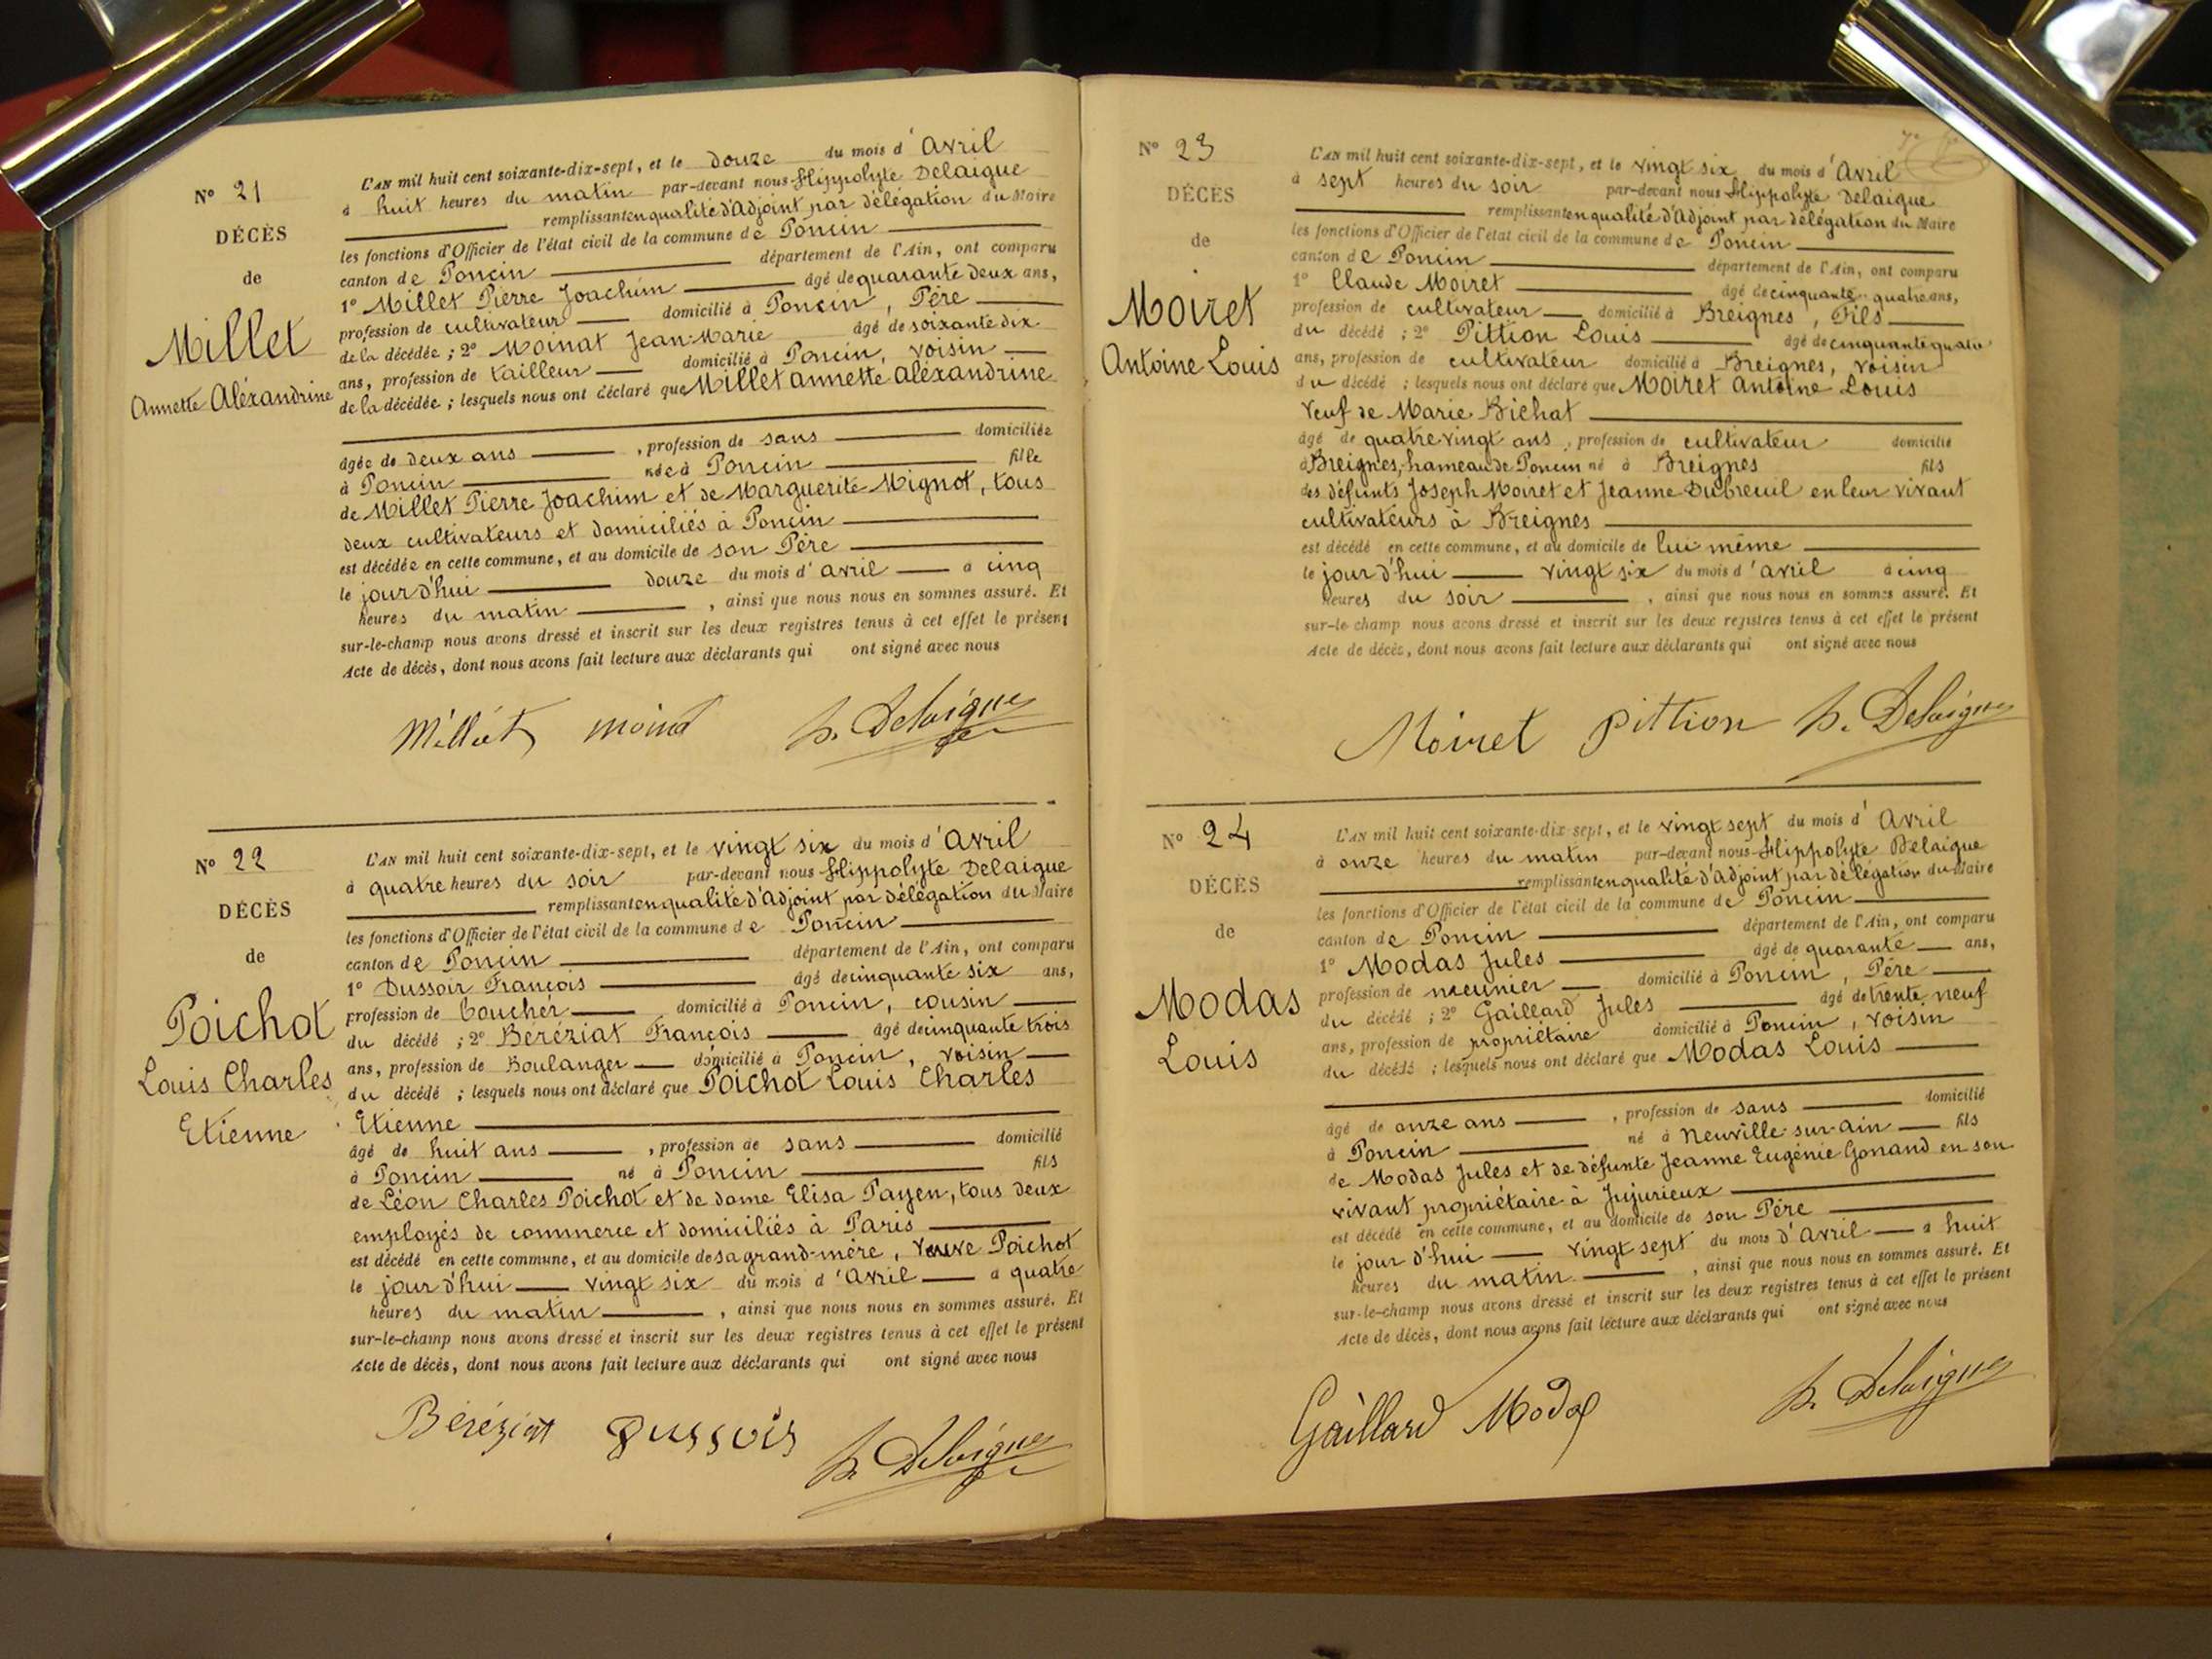 N° 21
DÉCÈS
de
Millet
Annette Aléxandrine
L'AN mil huit cent soixante-dix-sept, et le douze du mois d'Avril
à huit heures du matin par-devant nous Hippolyte Delaigue
remplissant en qualité d'Adjoint par délégation du Maire
les fonctions d'Officier de l'état civil de la commune de Poncin
canton de Poncin département de l'Ain, ont comparu
1° Millet Pierre Joachim âgé de quarante deux ans,
profession de cultivateur domicilié à Poncin, Père
de la décédée ; 2° Moinat Jean-Marie âgé de soixante dix
ans, profession de tailleur domicilié à Poncin, voisin
de la décédée ; lesquels nous ont déclaré que Millet annette aléxandrine
âgée de deux ans , profession de sans domiciliée
à Poncin née à Poncin fille
de Millet Pierre Joachim et de Marguerite Mignot, tous
deux cultivateurs et domiciliés à Poncin
est décédée en cette commune, et au domicile de son Père
le jour d'hui douze du mois d'avril à cinq
heures du matin , ainsi que nous nous en sommes assuré. Et
sur-le-champ nous avons dressé et inscrit sur les deux registres tenus à cet effet le présent
Acte de décès, dont nous avons fait lecture aux déclarants qui ont signé avec nous
Millet moinat h. Delaigue
N° 22
DÉCÈS
de
Poichot
Louis Charles
Etienne
L'AN mil huit cent soixante-dix-sept, et le vingt six du mois d'Avril
à quatre heures du soir par-devant nous Hippolyte Delaigue
remplissant en qualité d'Adjoint par délégation du Maire
les fonctions d'Officier de l'état civil de la commune de Poncin
canton de Poncin département de l'Ain, ont comparu
1° Dussoir François âgé de cinquante six ans,
profession de boucher domicilié à Poncin, cousin
du décédé ; 2° Béréziat François âgé de cinquante trois
ans, profession de Boulanger domicilié à Poncin, voisin
du décédé ; lesquels nous ont déclaré que Poichot Louis Charles
Etienne
âgé de huit ans , profession de sans domicilié
à Poncin né à Poncin fils
de Léon Charles Poichot et de dame Elisa Payen, tous deux
employés de commerce et domiciliés à Paris
est décédé en cette commune, et au domicile de sa grand-mère, Veuve Poichot
le jour d'hui vingt six du mois d'Avril à quatre
heures du matin , ainsi que nous nous en sommes assuré. Et
sur-le-champ nous avons dressé et inscrit sur les deux registres tenus à cet effet le présent
Acte de décès, dont nous avons fait lecture aux déclarants qui ont signé avec nous
Béréziat Dussoir h. Delaigue
N° 23
DÉCÈS
de
Moiret
Antoine Louis
L'AN mil huit cent soixante-dix-sept, et le vingt six du mois d'Avril
à sept heures du soir par-devant nous Hippolyte Delaigue
remplissant en qualité d'Adjoint par délégation du Maire
les fonctions d'Officier de l'état civil de la commune de Poncin
canton de Poncin département de l'Ain, ont comparu
1° Claude Moiret âgé de cinquante-quatre ans,
profession de cultivateur domicilié à Breignes, Fils
du décédé ; 2° Pittion Louis âgé de cinquante quatre
ans, profession de cultivateur domicilié à Breignes, voisin
du décédé ; lesquels nous ont déclaré que Moiret Antoine Louis
Veuf de Marie Bichat
âgé de quatre vingt ans , profession de cultivateur domicilié
à Breignes, hameau de Poncin né à Breignes fils
des défunts Joseph Moiret et Jeanne Dubreuil en leur vivant
cultivateurs à Breignes
est décédé en cette commune, et au domicile de lui même
le jour d'hui vingt six du mois d'avril à cinq
heures du soir , ainsi que nous nous en sommes assuré. Et
sur-le-champ nous avons dressé et inscrit sur les deux registres tenus à cet effet le présent
Acte de décès, dont nous avons fait lecture aux déclarants qui ont signé avec nous
Moiret Pittion h. Delaigue
N° 24
DÉCÈS
de
Modas
Louis
L'AN mil huit cent soixante-dix-sept, et le vingt sept du mois d'Avril
à onze heures du matin par-devant nous Hippolyte Delaigue
remplissant en qualité d'Adjoint par délégation du Maire
les fonctions d'Officier de l'état civil de la commune de Poncin
canton de Poncin département de l'Ain, ont comparu
1° Modas Jules âgé de quarante ans,
profession de meunier domicilié à Poncin, Père
du décédé ; 2° Gaillard Jules âgé de trente neuf
ans, profession de propriétaire domicilié à Poncin, voisin
du décédé ; lesquels nous ont déclaré que Modas Louis
âgé de onze ans , profession de sans domicilié
à Poncin né à Neuville-sur-ain fils
de Modas Jules et de défunte Jeanne Eugénie Gonand en son
vivant propriétaire à Jujurieux
est décédé en cette commune, et au domicile de son Père
le jour d'hui vingt sept du mois d'Avril à huit
heures du matin , ainsi que nous nous en sommes assuré. Et
sur-le-champ nous avons dressé et inscrit sur les deux registres tenus à cet effet le présent
Acte de décès, dont nous avons fait lecture aux déclarants qui ont signé avec nous
Gaillard Modas h. Delaigue